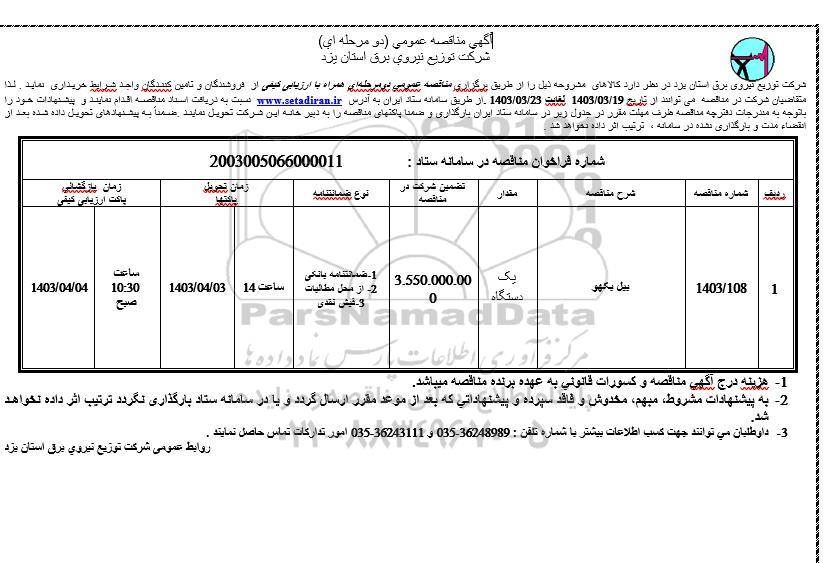 آگهي مناقصه عمومي (دو مرحله اي)
شركت توزيع نيروي برق استان يزد
شركت توزيع نيروي برق استان يزد در نظر دارد كالاهاي مشروحه ذيل را از طريق برگزاري مناقصه عمومي دومرحله‌اي همراه با ارزيابي كيفي از فروشندگان و تامين كنندگان واجد شرايط خريداري نمايد . لذا
متقاضيان شركت در مناقصه مي توانند از تاريخ 1403/03/19 لغايت 1403/03/23 .از طريق سامانه ستاد ايران به آدرس www.setadiran.ir نسبت به دريافت اسناد مناقصه اقدام نمايند و پيشنهادات خود را
باتوجه به مندرجات دفترچه مناقصه ظرف مهلت مقرر در جدول زير در سامانه ستاد ايران بارگذاري و ضمنا پاكتهاي مناقصه را به دبير خانه اين شركت تحويل نمايند .ضمناً به پيشنهادهاي تحويل داده شده بعد از
انقضاء مدت و بارگذاري نشده در سامانه ، ترتيب اثر داده نخواهد شد .
شماره فراخوان مناقصه در سامانه ستاد : 2003005066000011
رديف شماره مناقصه شرح مناقصه مقدار تضمين شركت در مناقصه نوع ضمانتنامه زمان تحويل پاكتها زمان بازگشائي پاكت ارزيابي كيفي
1 1403/108 بيل بكهو يک دستگاه 3.550.000.000 1-ضمانتنامه بانكي 2- از محل مطالبات 3-فيش نقدي ساعت 14 1403/04/03 ساعت 10:30 صبح 1403/04/04
ParsNamadData
مرکز فرآوری اطلاعات پارس نماد داده ها
1- هزينه درج آگهي مناقصه و كسورات قانوني به عهده برنده مناقصه ميباشد.
2- به پيشنهادات مشروط، مبهم، مخدوش و فاقد سپرده و پيشنهاداتي كه بعد از موعد مقرر ارسال گردد و يا در سامانه ستاد بارگذاري نگردد ترتيب اثر داده نخواهد
شد.
3- داوطلبان مي توانند جهت كسب اطلاعات بيشتر با شماره تلفن : 36248989-035 و 36243111-035 امور تداركات تماس حاصل نمايند .
روابط عمومي شركت توزيع نيروي برق استان يزد